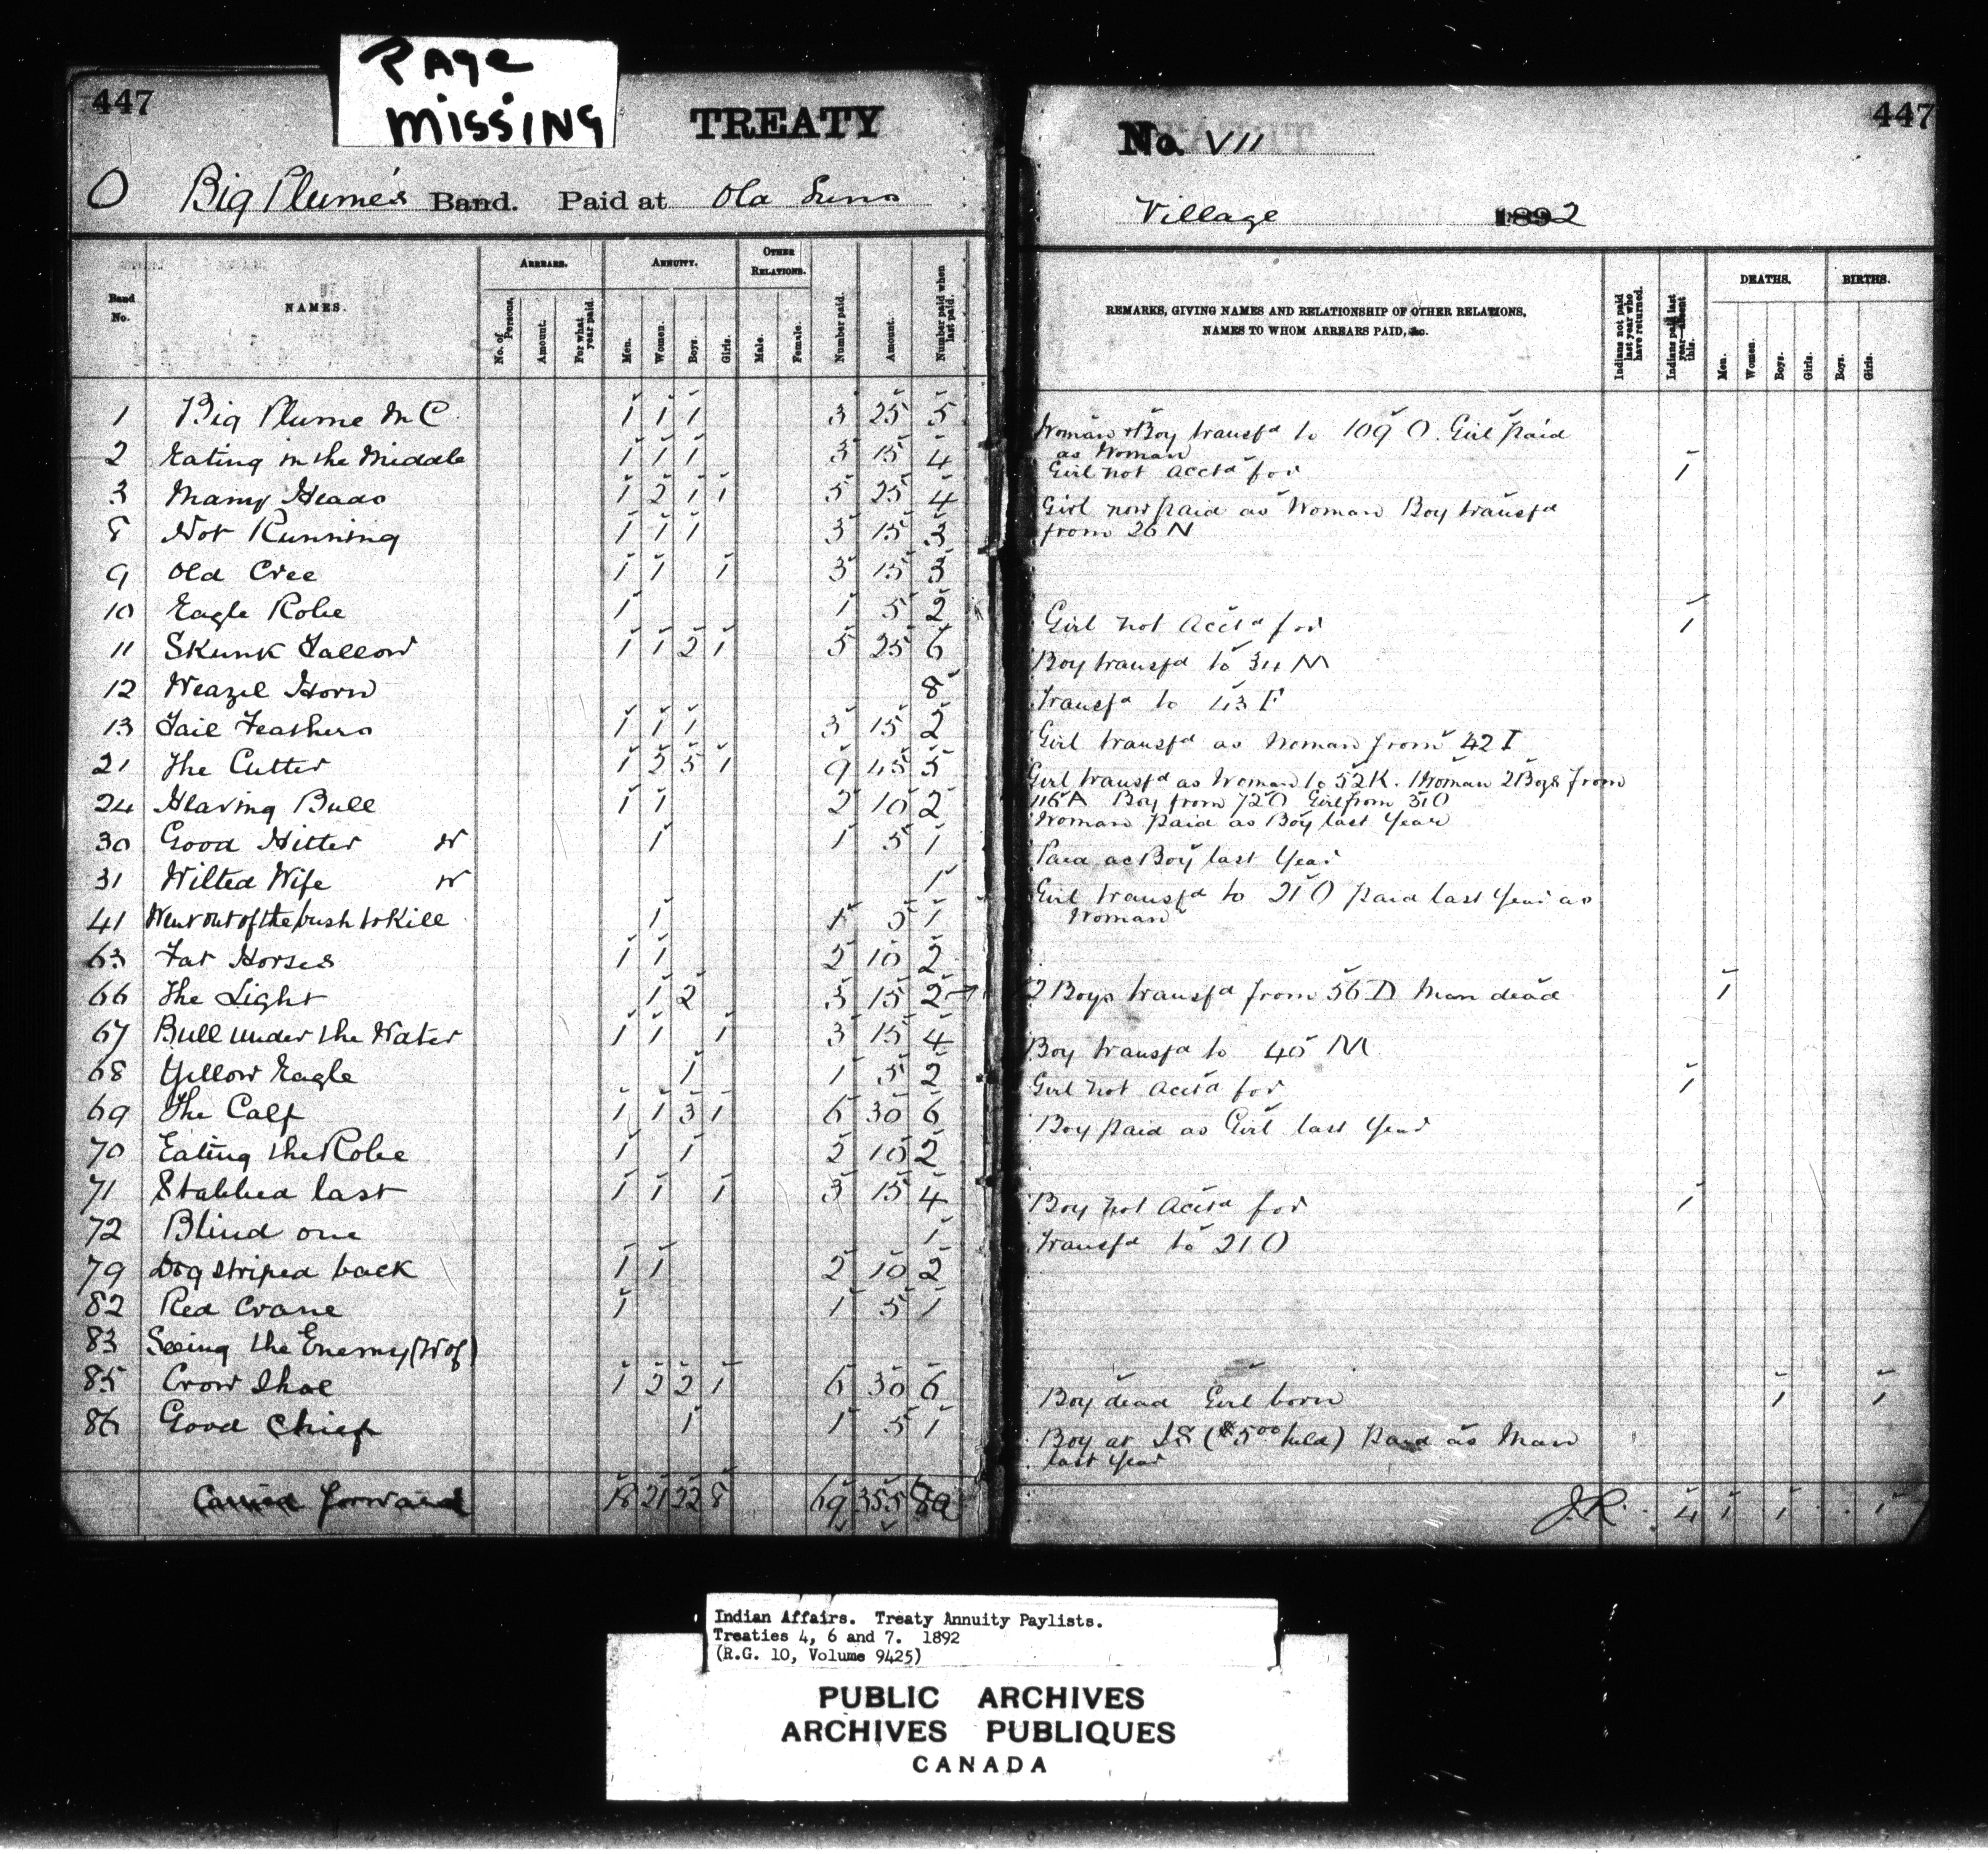 PAGE
MISSING
447
TREATY
O Big Plume's Band. Paid at Old Suns
Band No.
NAMES.
ARREARS.
No. of Persons.
Amount.
For what year paid.
ANNUITY.
Men.
Women.
Boys.
Girls.
OTHER RELATIONS.
Male.
Female.
Number paid.
Amount.
Number paid when last paid.
1 Big Plume M C 1 1 1 3 25 5
2 Eating in the Middle 1 1 1 3 15 4
3 Many Heads 1 2 1 1 5 25 4
8 Not Running 1 1 1 3 15 3
9 Old Cree 1 1 1 3 15 3
10 Eagle Robe 1 1 5 2
11 Skunk Tallow 1 1 2 1 5 25 6
12 Weazel Horn 8
13 Tail Feathers 1 1 1 3 15 2
21 The Cutter 1 2 5 1 9 45 5
24 Having Bull 1 1 2 10 2
30 Good Hitter W 1 1 5 1
31 Wilted Wife W 1
41 Went out of the bush to Kill 1 1 5 1
63 Fat Horses 1 1 2 10 2
66 The Light 1 2 3 15 2
67 Bull under the Water 1 1 1 3 15 4
68 Yellow Eagle 1 1 5 2
69 The Calf 1 1 3 1 6 30 6
70 Eating the Robe 1 1 2 10 2
71 Stabbed last 1 1 1 3 15 4
72 Blind one 1
79 Dog striped back 1 1 2 10 2
82 Red Crane 1 1 5 1
83 Seeing the Enemy (W of)
85 Crow Shoe 1 2 2 1 6 30 6
86 Good Chief 1 1 5 1
Carried forward 18 21 22 8 69 355
447
No. VII
Village 1892
REMARKS, GIVING NAMES AND RELATIONSHIP OF OTHER RELATIONS,
NAMES TO WHOM ARREARS PAID, &c.
Indians not paid last year who have returned.
Indians paid last year—absent this.
DEATHS.
Men.
Women.
Boys.
Girls.
BIRTHS.
Boys.
Girls.
Woman & Boy transfd to 109 O. Girl paid
as Woman
Girl not acctd for 1
Girl now paid as Woman Boy transfd
from 26 N
Girl not acctd for 1
Boy transfd to 34 M
Transfd to 43 F
Girl transfd as Woman from 42 I
Girl transfd as Woman to 52 K. 1 Woman 2 Boys from
116 A Boy from 72 O Girl from 31 O
Woman paid as Boy last Year
Paid as Boy last Year
Girl transfd to 21 O paid last Year as
Woman
2 Boys transfd from 56 D Man dead 1
Boy transfd to 45 M
Girl not acctd for 1
Boy paid as Girl last Year
Boy not acctd for 1
Transfd to 21 O
Boy dead Girl born 1 1
Boy at IS ($5.00 held) Paid as Man
last Year
J.R. 4 1 1 1
Indian Affairs. Treaty Annuity Paylists.
Treaties 4, 6 and 7. 1892
(R.G. 10, Volume 9425)
PUBLIC ARCHIVES
ARCHIVES PUBLIQUES
CANADA